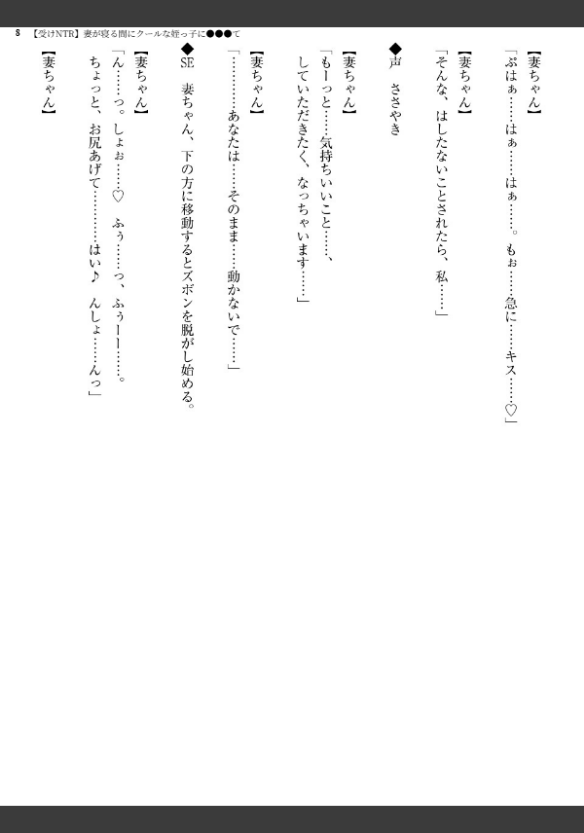 8 【受けNTR】妻が寝る間にクールな姪っ子に●●●て
【妻ちゃん】
「ぷはぁ……はぁ……はぁ……。もぉ……急に……キス……♡」
【妻ちゃん】
「そんな、はしたないことされたら、私……」
◆声　ささやき
【妻ちゃん】
「もーっと……気持ちいいこと……、
していただきたく、なっちゃいます……」
【妻ちゃん】
「…………あなたは……そのまま……動かないで……」
◆SE　妻ちゃん、下の方に移動するとズボンを脱がし始める。
【妻ちゃん】
「ん……っ。しょぉ……♡　ふぅ……っ、ふぅーー……。
ちょっと、お尻あげて…………はい♪　んしょ……んっ」
【妻ちゃん】